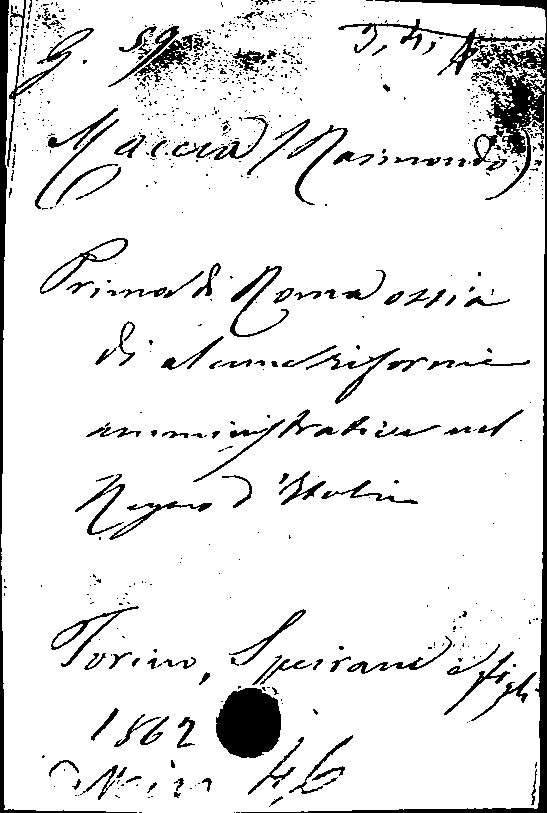 G. 59 3, 4, A
Maccia (Raimondo)
Prima di Roma ossia
di alcune riforme
amministrative nel
Regno d'Italia
Torino, Speirani e figli
1862
Misc. 46